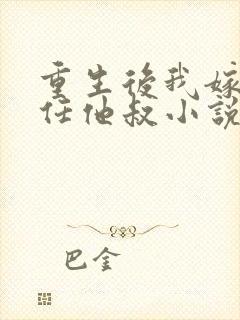 重生後我嫁
任他叔小說
巴金